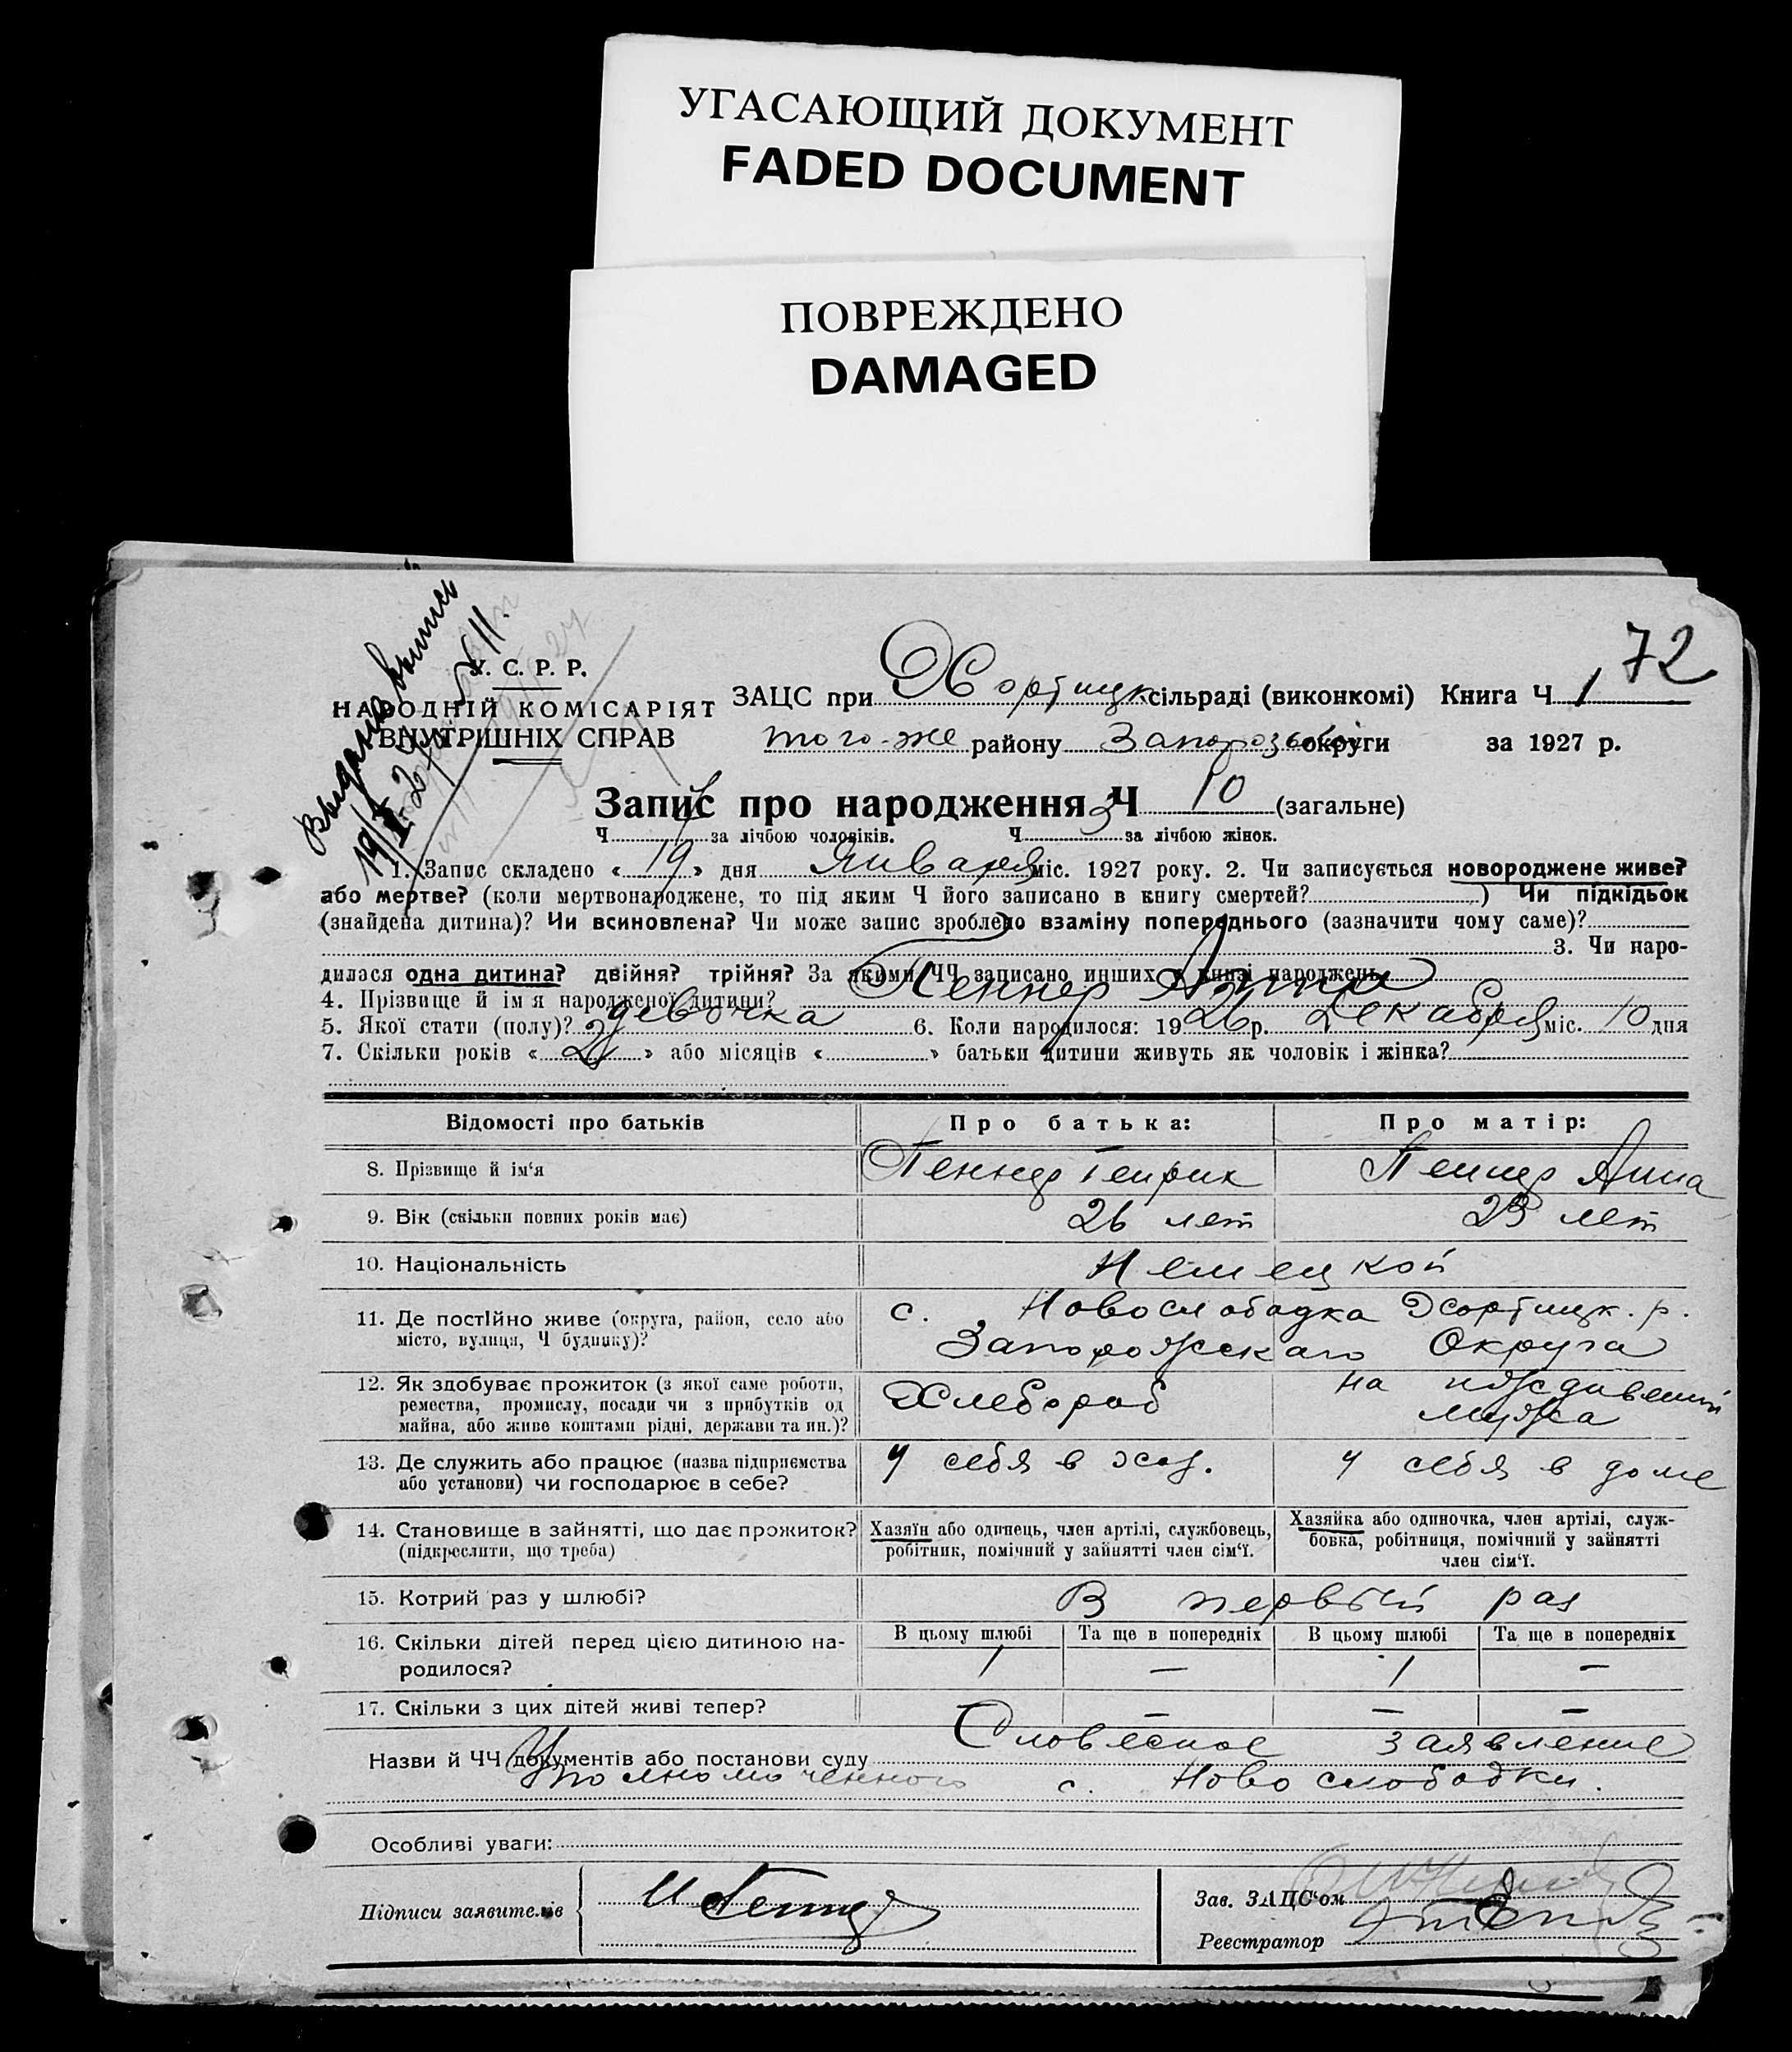 УГАСАЮЩИЙ ДОКУМЕНТ
FADED DOCUMENT
ПОВРЕЖДЕНО
DAMAGED
72
Выдана выпись
19/II 27
У. С. Р. Р.
НАРОДНІЙ КОМІСАРІЯТ
ВНУТРІШНІХ СПРАВ
ЗАЦС при Хортицк сільраді (виконкомі) Книга Ч 1
того-же району Запорозької округи за 1927 р.
Запис про народження Ч 10 (загальне)
Ч за лічбою чоловіків. Ч 3 за лічбою жінок.
1. Запис складено « 19 » дня Января міс. 1927 року. 2. Чи записується новороджене живе?
або мертве? (коли мертвонароджене, то під яким Ч його записано в книгу смертей? ) Чи підкідьок
(знайдена дитина)? Чи всиновлена? Чи може запис зроблено взаміну попереднього (зазначити чому саме)?
3. Чи наро-
дилася одна дитина? двійня? трійня? За якими ЧЧ записано инших в книзі народжень
4. Прізвище й ім'я народженої дитини? Пеннер Анна
5. Якої стати (полу)? девочка 6. Коли народилося: 1926 р. Декабря міс. 10 дня
7. Скільки років « 2 » або місяців « » батьки дитини живуть як чоловік і жінка?
Відомості про батьків Про батька: Про матір:
8. Прізвище й ім'я Пеннер Генрих Пеннер Анна
9. Вік (скільки повних років має) 26 лет 23 лет
10. Національність Немецкой
11. Де постійно живе (округа, район, село або с. Новослободка Хортицк. р.
місто, вулиця, Ч будинку)? Запорожскаго Округа
12. Як здобуває прожиток (з якої саме роботи, Хлебороб на иждивении
ремества, промислу, посади чи з прибутків од мужа
майна, або живе коштами рідні, держави та ин.)?
13. Де служить або працює (назва підприємства у себя в хоз. у себя в доме
або установи) чи господарює в себе?
14. Становище в зайнятті, що дає прожиток? Хазяїн або одинець, член артілі, службовець, Хазяйка або одиночка, член артілі, служ-
(підкреслити, що треба) робітник, помічний у зайнятті член сім'ї. бовка, робітниця, помічний у зайнятті
член сім'ї.
15. Котрий раз у шлюбі? В первый раз
16. Скільки дітей перед цією дитиною на- В цьому шлюбі Та ще в попередніх В цьому шлюбі Та ще в попередніх
родилося? 1 — 1 —
17. Скільки з цих дітей живі тепер? — — —
Назви й ЧЧ документів або постанови суду Словесное заявление
Уполномоченного с. Ново слободки.
Особливі уваги:
Підписи заявителів
Зав. ЗАЦС'ом
Реестратор